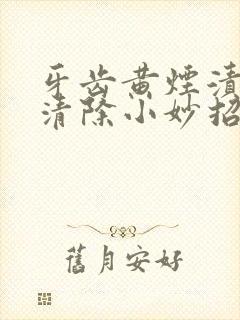 牙齿黄煙漬
清除小妙招
舊月安好